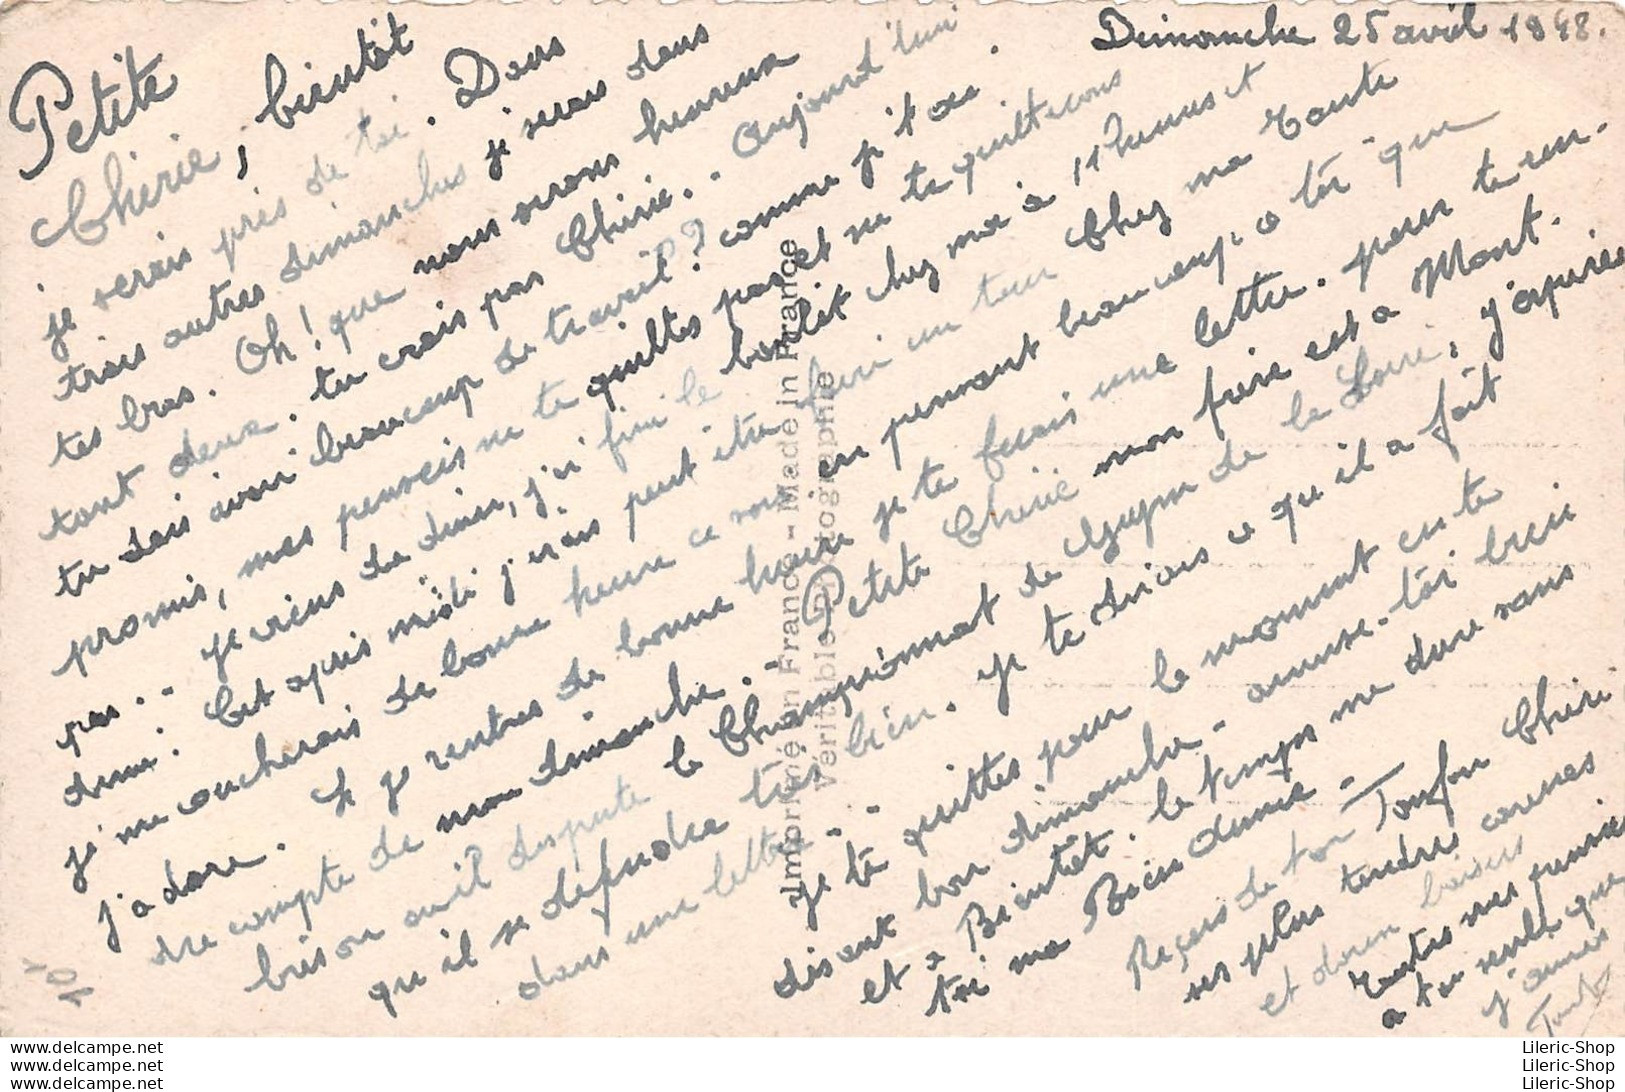 Dimanche 25 avril 1948.
Petite
Chérie, bientôt
je serais près de toi. Dans
trois autres dimanches je serais dans
tes bras. Oh! que nous serons heureux
tout deux. tu crois pas Chérie.. Aujourd'hui
tu dois avoir beaucoup de travail? comme je t'ai
promis, mes pensées ne te quittes pas et ne te quitterons
pas.. je viens de diner, j'ai fini le boulot chez moi à 11 heures et
demi. Cet après midi j'irais peut être faire un tour chez ma tante
je me coucherais de bonne heure ce soir en pensant beaucoup a toi que
j'adore. Si je rentres de bonne heure je te ferais une lettre. pour te ren-
dre compte de mon dimanche.. Petite Chérie mon frère est a Mont.
brison ou il dispute le Championnat de Gym de la Loire, j'espères
qu'il se défendra très bien. je te dirais ce qu'il a fait
dans une lettre.
je te quittes pour le moment en te
disant bon dimanche - amuse-toi bien
et a Bientôt. le temps me dure sans
toi ma Bien aimé -
Reçois de ton Toufou Chéri
ses plus tendres caresses
et doux baisers
Toutes mes pensées
a toi seule que
j'aimes
101
Imprimé en France - Made in France
Véritable Photographie
www.delcampe.net
www.delcampe.net
www.delcampe.net
Lileric-Shop
Lileric-Shop
Lileric-Shop